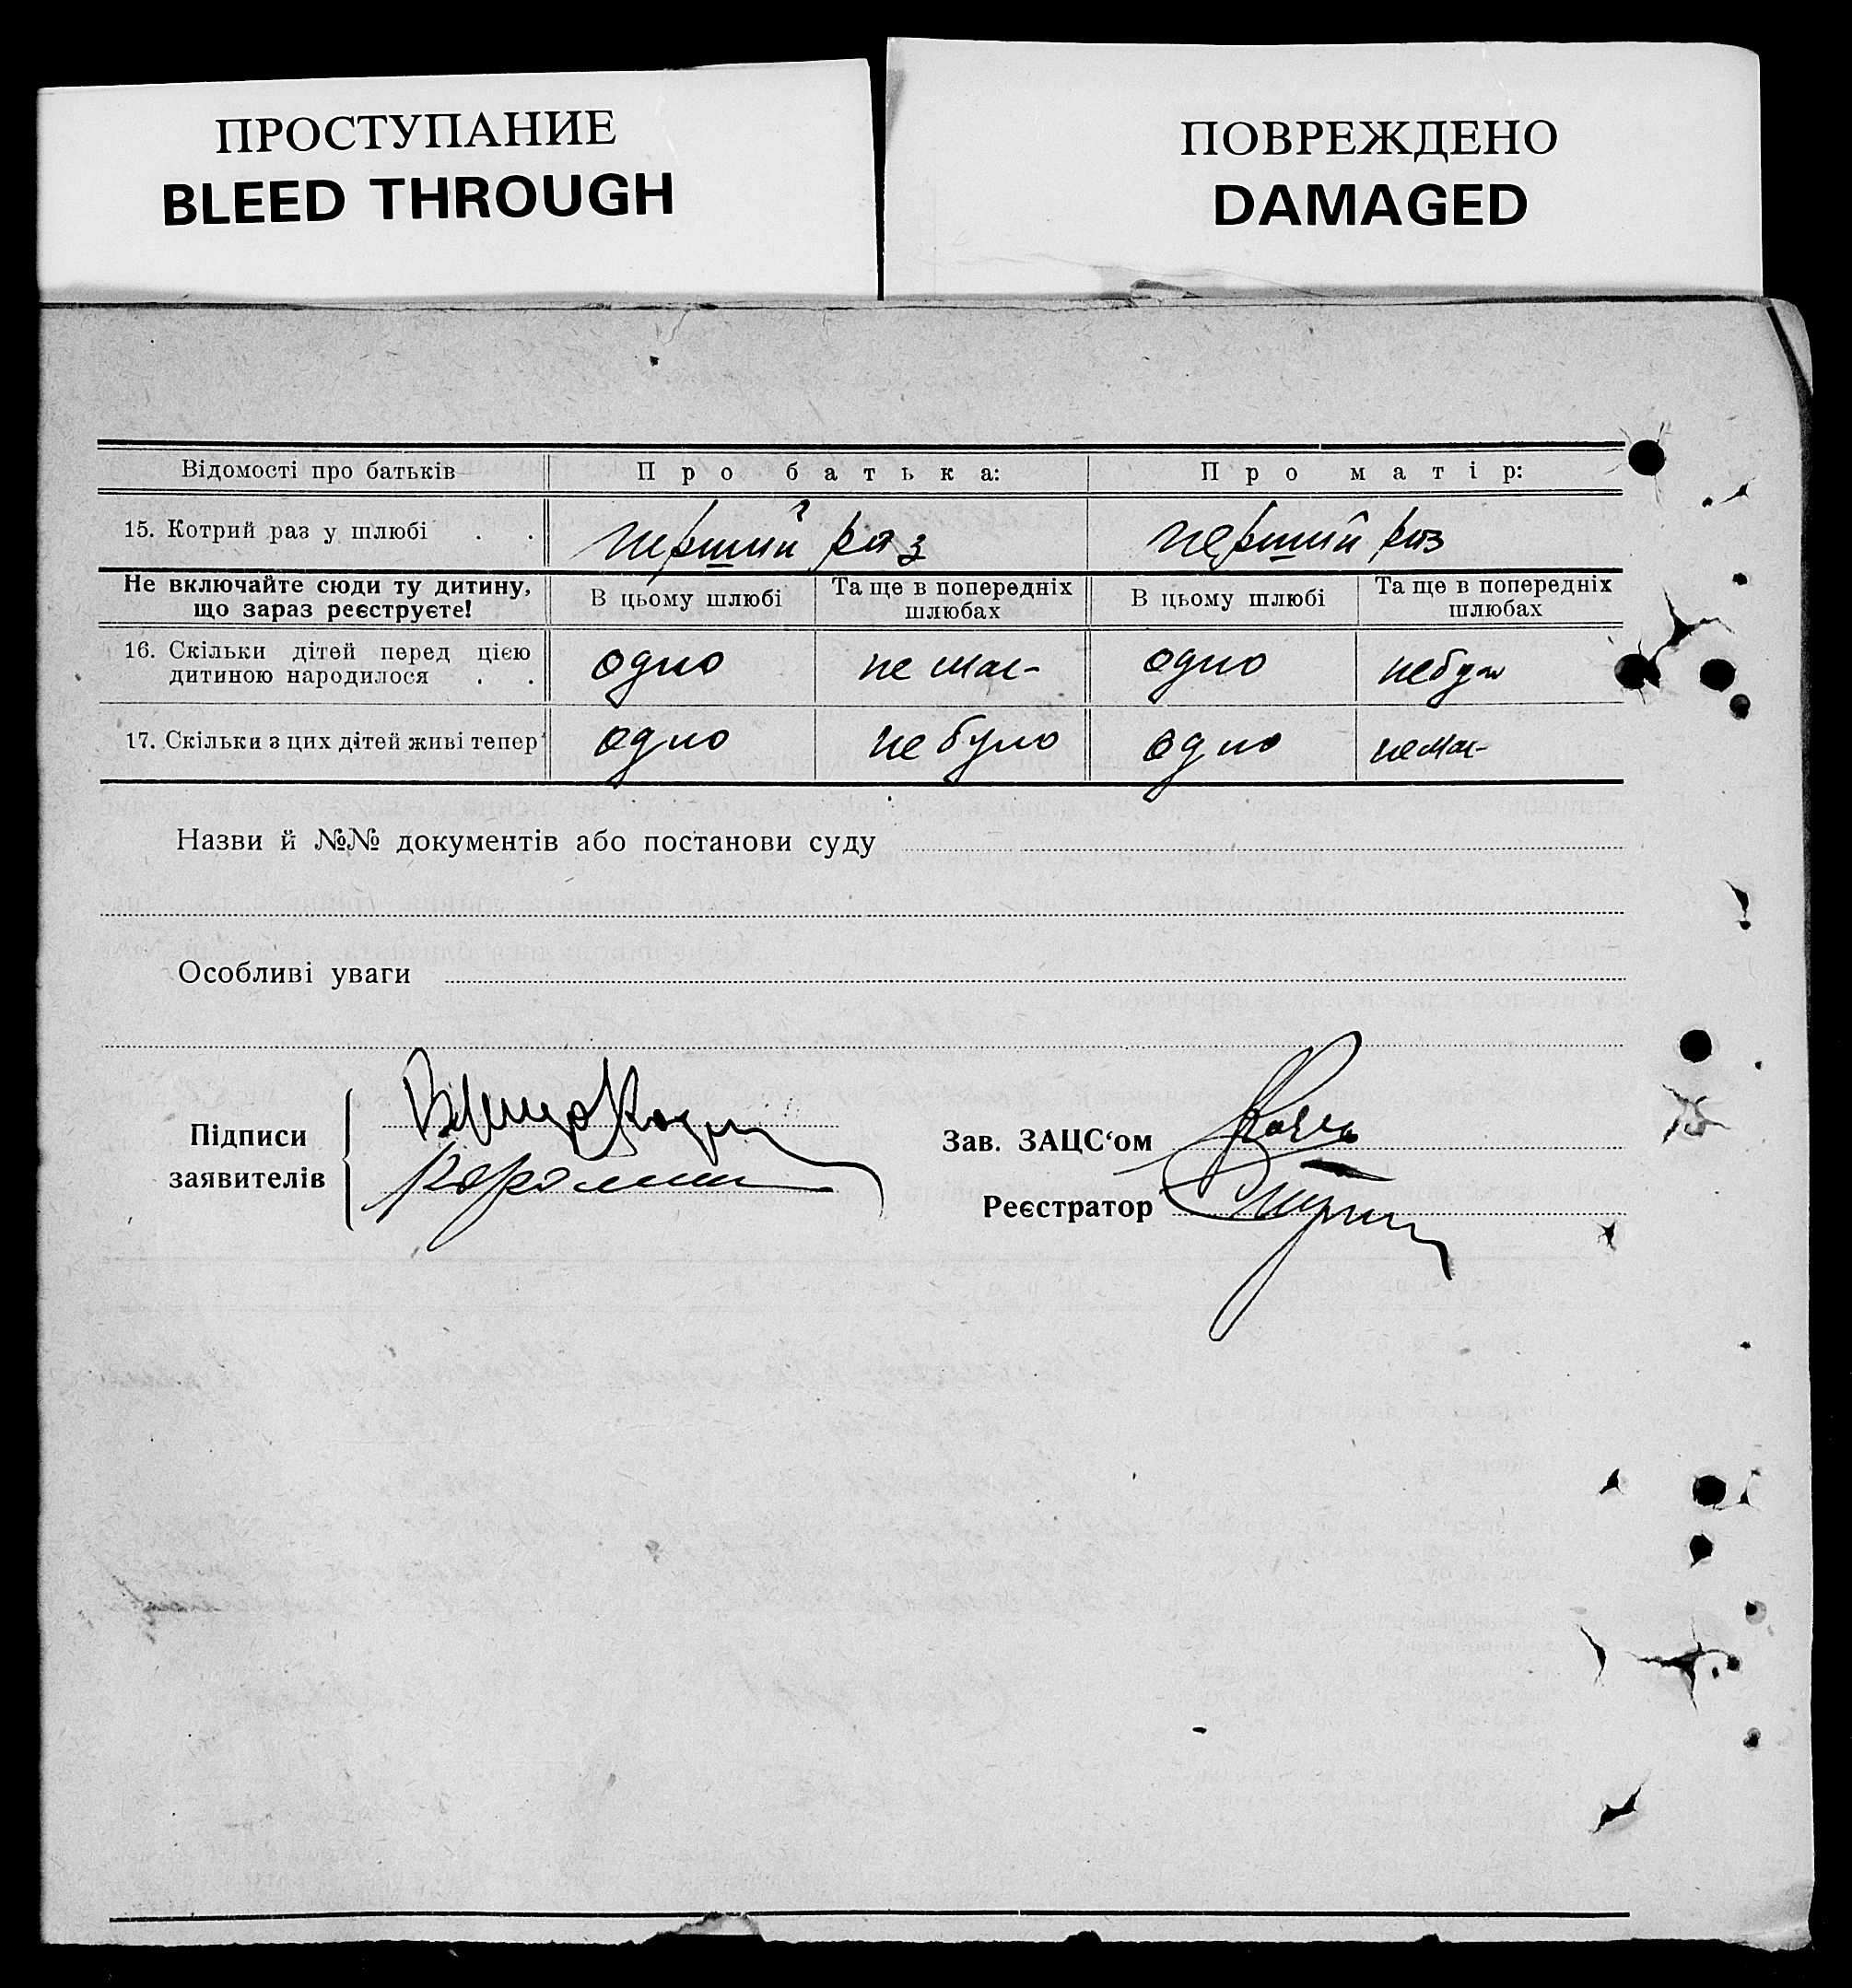 ПРОСТУПАНИЕ
BLEED THROUGH
ПОВРЕЖДЕНО
DAMAGED
Відомості про батьків Про батька: Про матір:
15. Котрий раз у шлюбі . . перший раз перший раз
Не включайте сюди ту дитину, що зараз реєструєте! В цьому шлюбі Та ще в попередніх шлюбах В цьому шлюбі Та ще в попередніх шлюбах
16. Скільки дітей перед цією
дитиною народилося . . одно не має одно не було
17. Скільки з цих дітей живі тепер одно не було одно немає
Назви й №№ документів або постанови суду
Особливі уваги
Підписи
заявителів
Зав. ЗАЦС‘ом
Реєстратор